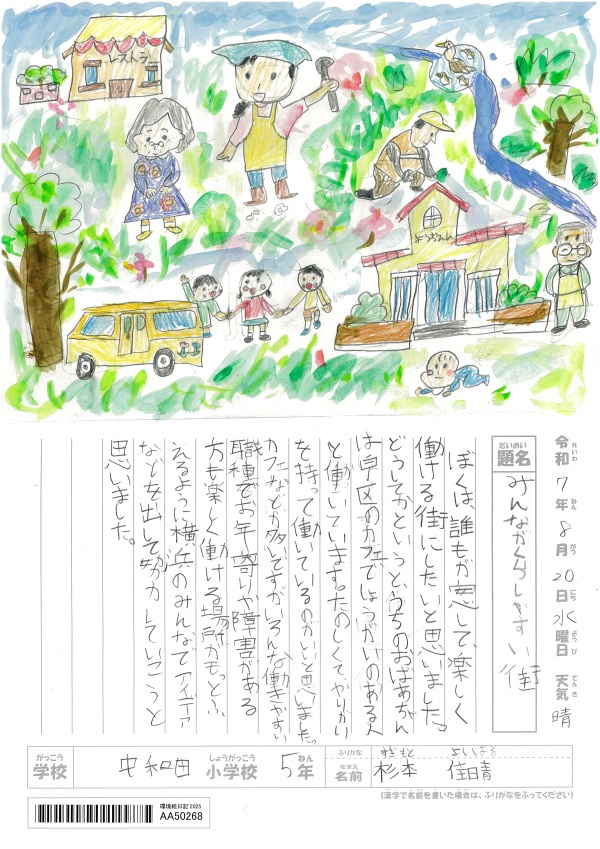 レストラン
ようちえん
令和 7年 8月 20日 水曜日 天気 晴
れいわ ねん がつ にち ようび てんき
題名 みんながくらしやすい街
だいめい
ぼくは、誰もが安心して、楽しく
働ける街にしたいと思いました。
どうしてかというと、うちのおばあちゃん
は泉区のカフェでしょうがいのある人
と働いています。たのしくて、やりがい
を持って働いているのがいいと思いました。
カフェなどが多いですがいろんな働きやすい
職種でお年寄りや障害がある
方も楽しく働ける場所がもっとふ
えるように横浜のみんなでアイデア
などを出して努力していこうと
思いました。
がっこう しょうがっこう ねん ふりがな すぎもと よしはる
学校 中和田 小学校 5年 なまえ 名前 杉本 佳晴
(漢字で名前を書いた場合は、ふりがなをふってください)
環境絵日記 2025
AA50268